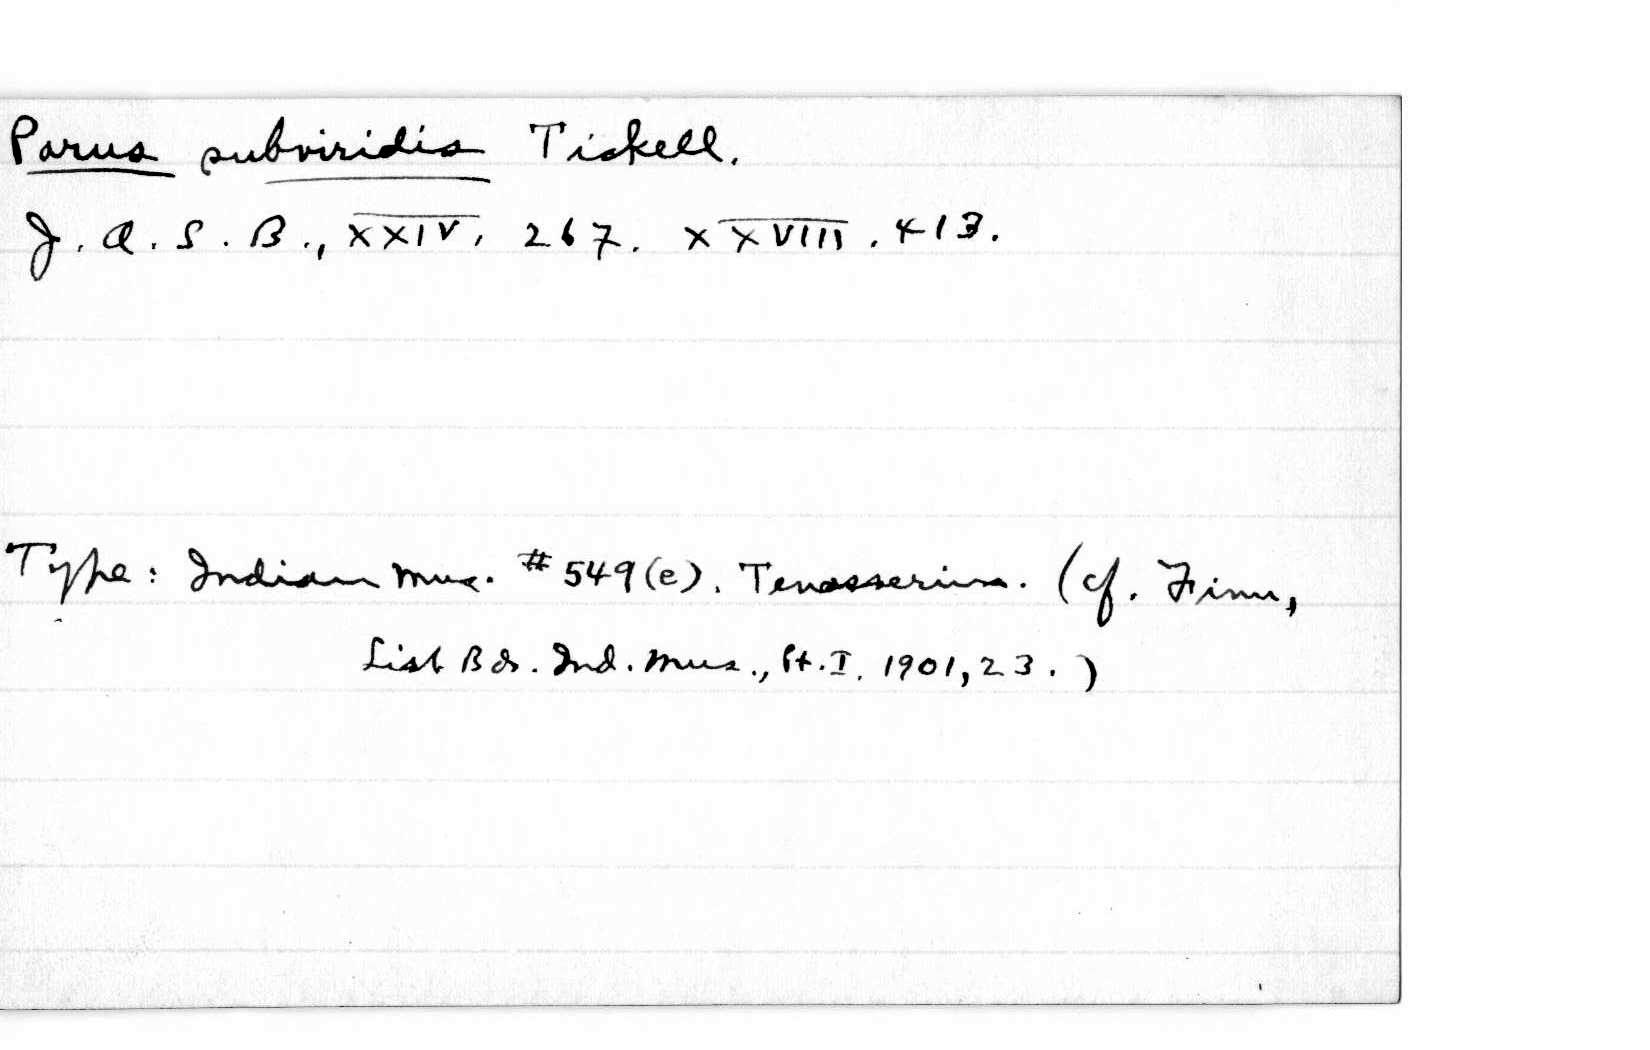 Parus subviridis Tickell.
J. A. S. B., XXIV, 267. XXVIII. 413.
Type: Indian Mus. # 549(e). Tenasserim. (cf. Finn,
List Bds. Ind. Mus., Pt. I. 1901, 23.)